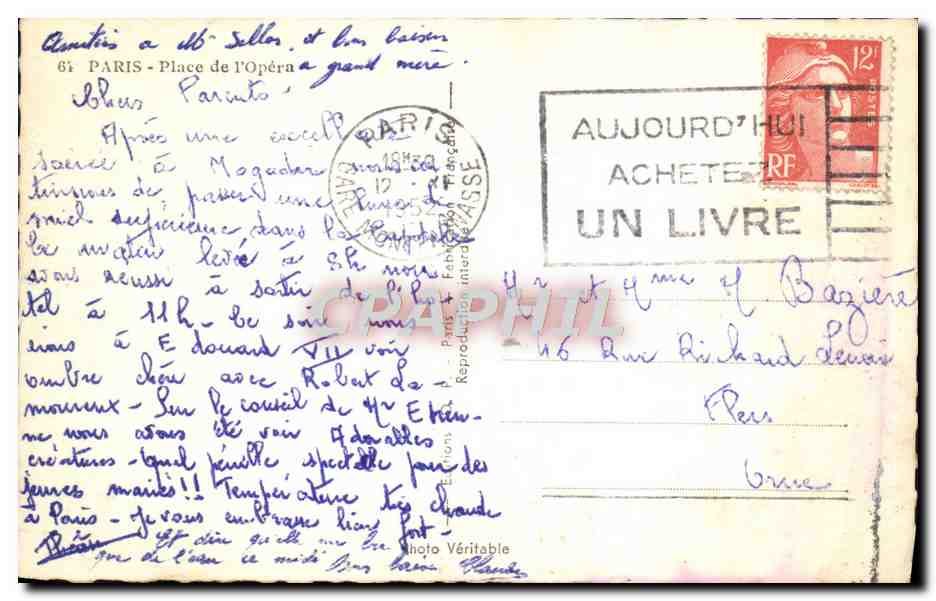 Amitiés a Mr Sellos, et bons baisers
a grand mère.
64 PARIS - Place de l'Opéra
Chers Parents
Après une excellente
soirée à Mogador nous con
tinuons de passer une lune de
miel supérieure dans la capitale
Ce matin levée à 8h nous
avons réussi à sortir de l'hô-
tel à 11h - Ce soir nous
irons à Edouard VII voir
ombre chère avec Robert La-
moureux - Sur le conseil de Mr Etien-
ne nous avons été voir Adorables
créatures - quel pénible spectacle pour des
jeunes mariés !! Température très chaude
à Paris - Je vous embrasse bien fort -
Et dire qu'elle ne
que de l'eau ce midi Bons baisers
PARIS
18H30
12
1952
GARE MONTPARNASSE
AUJOURD'HUI
ACHETEZ
UN LIVRE
12F
POSTES
RF
Editions - Paris - Fabrication Française
Reproduction interdite
Photo Véritable
CPAPHIL
Mr et Mme M Bazière
46 Rue Richard Lenoir
Flers
Orne